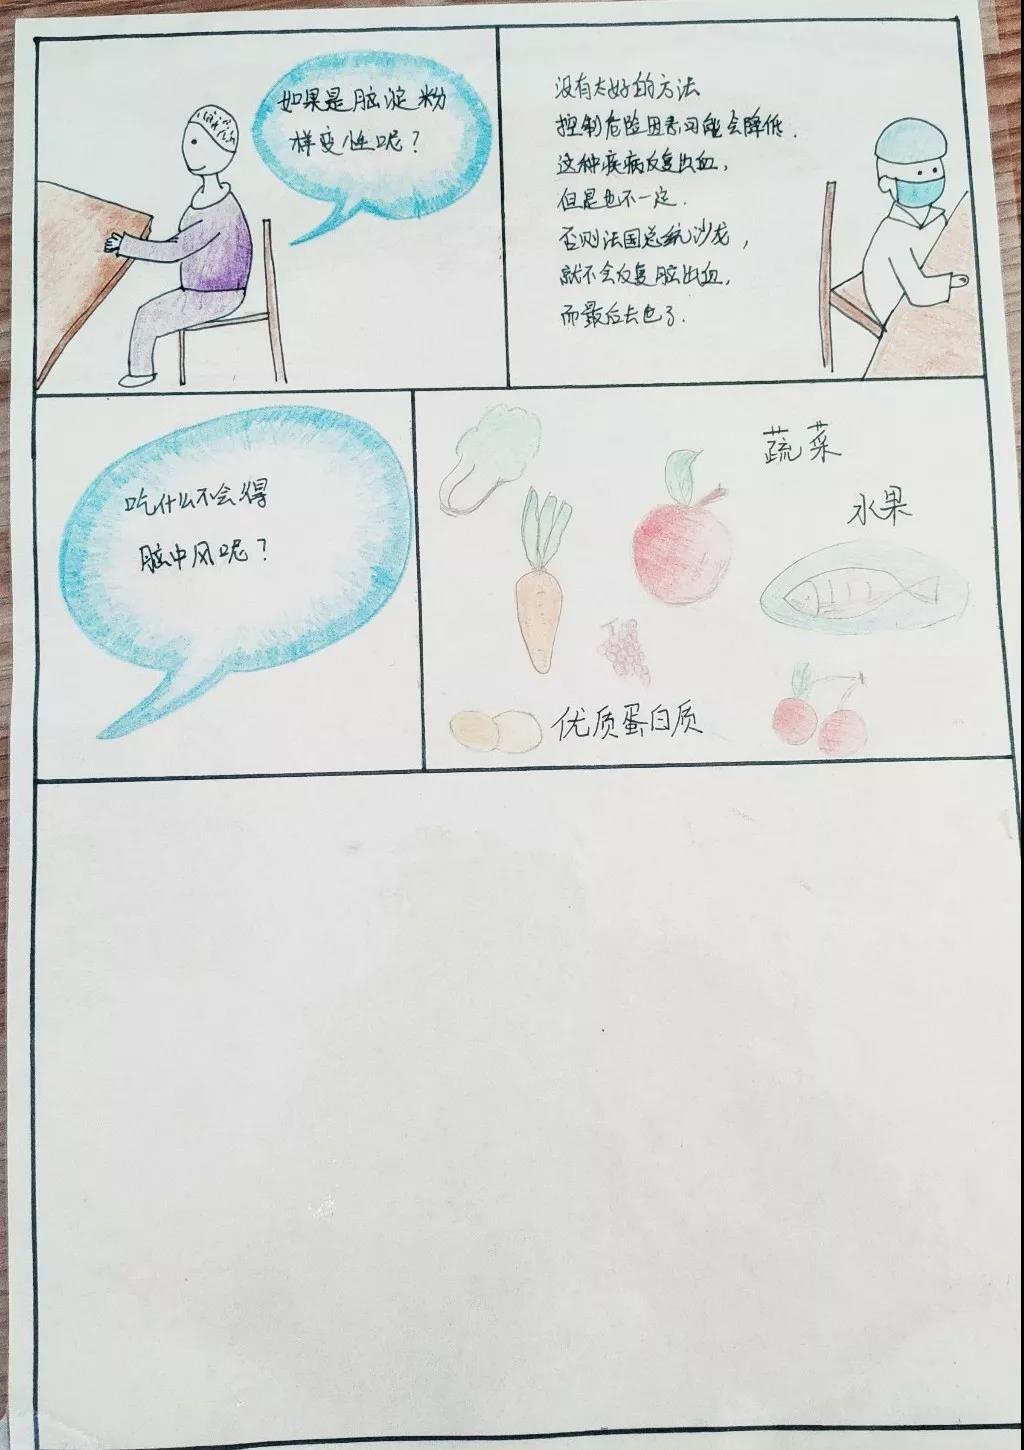 如果是脑淀粉
样变性呢？
没有太好的方法
控制危险因素可能会降低.
这种疾病反复出血,
但是也不一定.
否则法国总统沙龙,
就不会反复脑出血,
而最后去世了.
吃什么不会得
脑中风呢？
蔬菜
水果
优质蛋白质